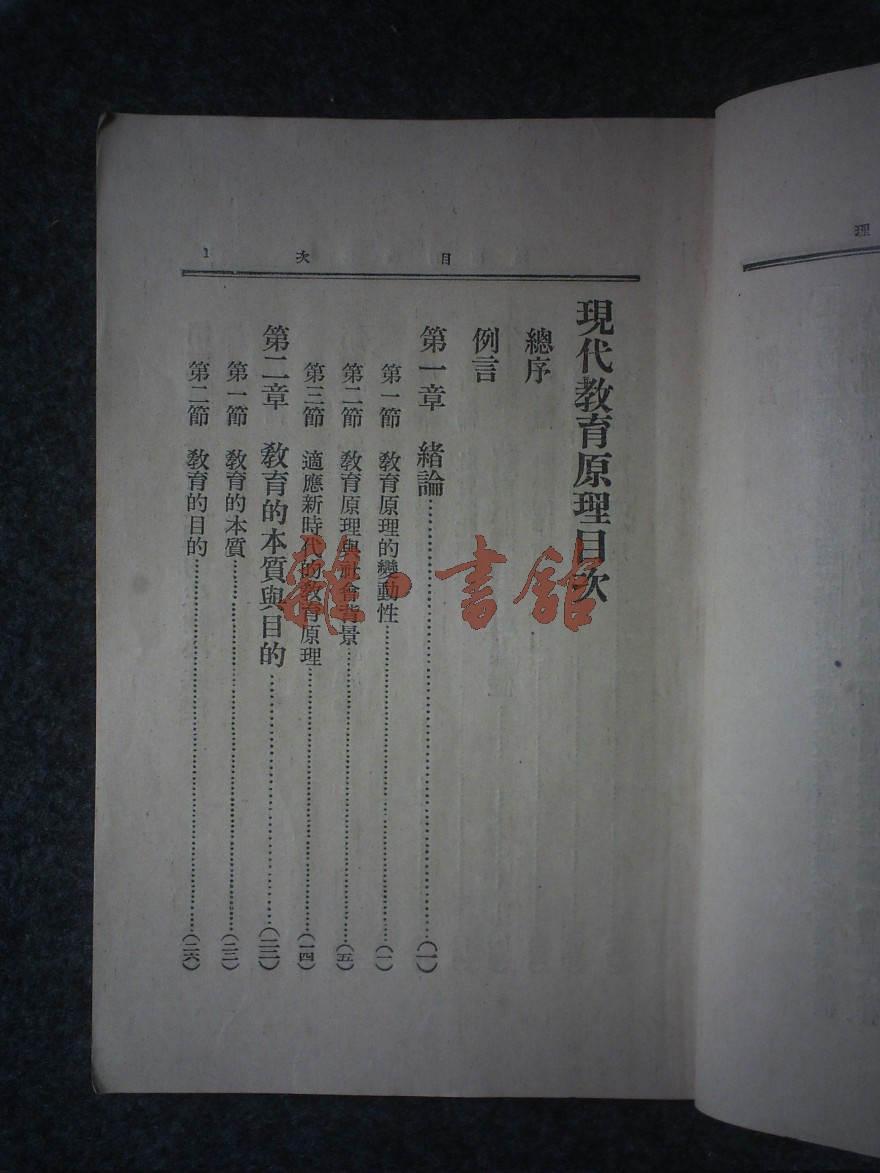 目次 1
現代教育原理目次
總序
例言
第一章 緒論……(一)
第一節 教育原理的變動性……(一)
第二節 教育原理與社會背景……(五)
第三節 適應新時代的教育原理……(一四)
第二章 教育的本質與目的……(二二)
第一節 教育的本質……(二二)
第二節 教育的目的……(二六)
書舘
理